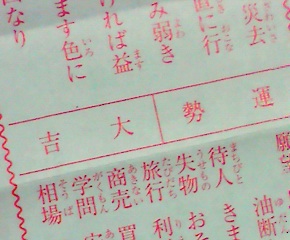 災去
直に行
み弱き
ければ益
ます色に
なり
運勢
大吉
願望
油断
待人 きま
失物 おる
旅行 利
商売 買
学問
相場